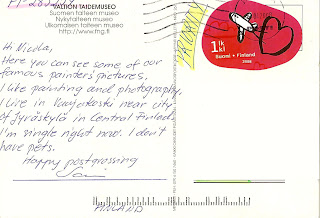 VALTION TAIDEMUSEO
Suomen taiteen museo
Nykytaiteen museo
Ulkomaisen taiteen museo
http://www.fng.fi
Hi Nicola,
Here you can see some of our
famous painters pictures.
I like painting and photography.
I live in near city
of Jyväskylä in Central Finland.
I'm single right now. I don't
have pets.
Happy postcrossing
1 lk
kl
Suomi • Finland
FINLAND